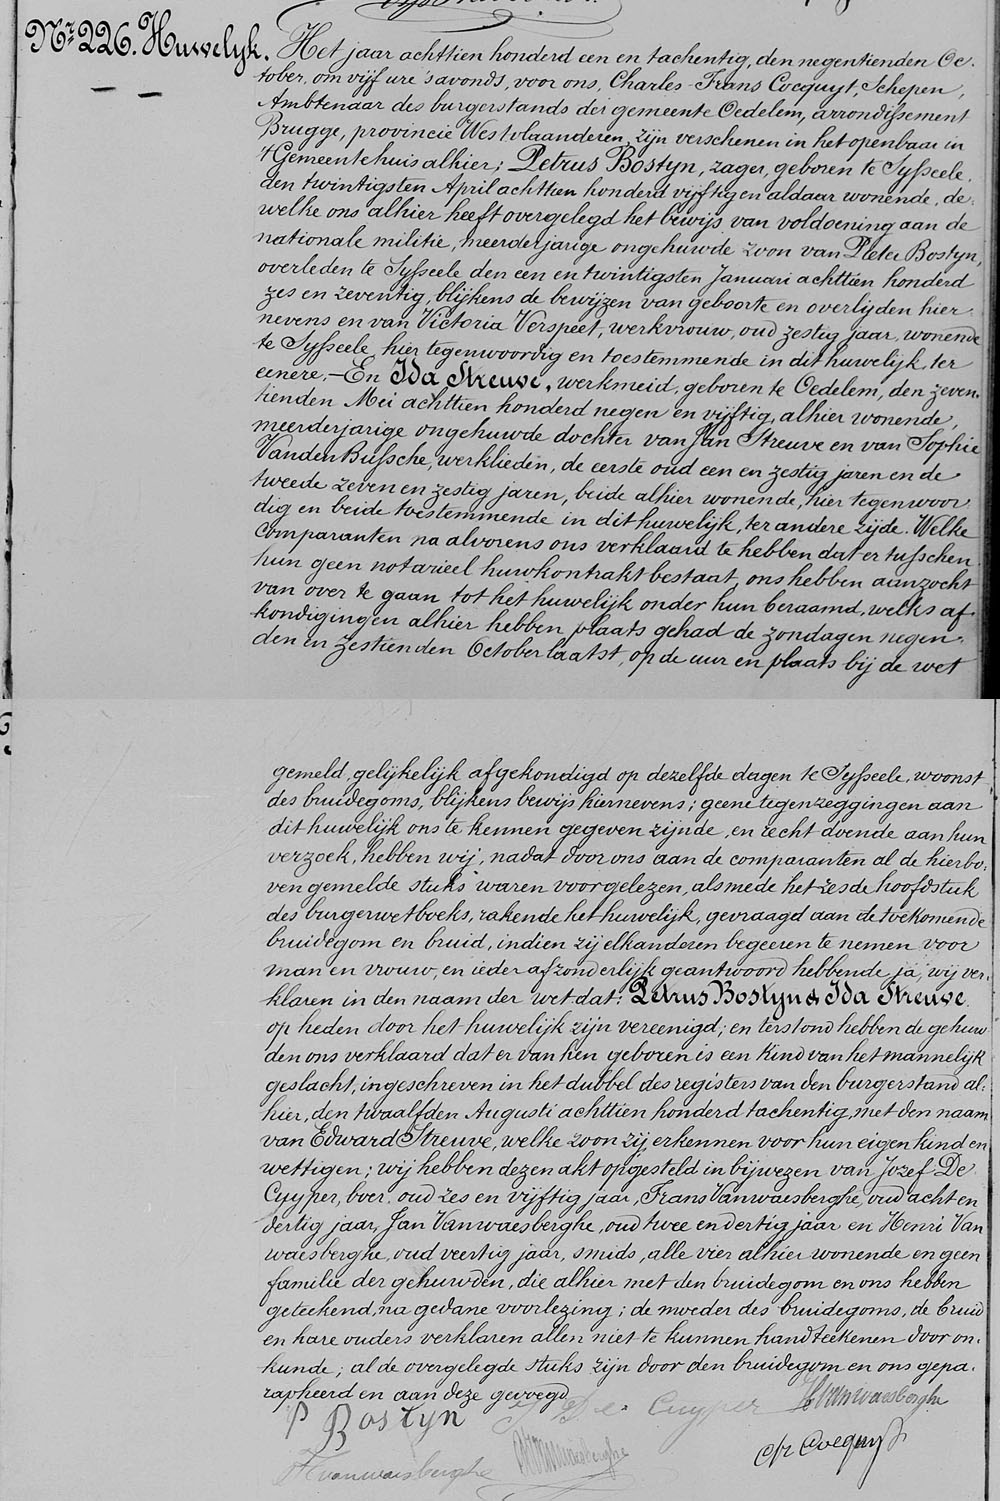 Nr. 226. Huwelijk.
Het jaar achttien honderd een en tachentig, den negentienden Oc-
tober, om vijf ure 's avonds, voor ons, Charles-Frans Cocquyt, Schepen,
Ambtenaar des burgerstands der gemeente Oedelem, arrondissement
Brugge, provincie Westvlaanderen, zijn verschenen in het openbaar in
't Gemeentehuis alhier; Petrus Bostyn, zager, geboren te Sysseele,
den twintigsten April achttien honderd vijftig en aldaar wonende, de-
welke ons alhier heeft overgelegd het bewijs van voldoening aan de
nationale militie, meerderjarige ongehuwde zoon van Pieter Bostyn,
overleden te Sysseele den een en twintigsten Januari achttien honderd
zes en zeventig, blijkens de bewijzen van geboorte en overlijden hier-
nevens en van Victoria Verspeet, werkvrouw, oud zestig jaar, wonende
te Sysseele, hier tegenwoordig en toestemmende in dit huwelijk, ter
eenere.- En Ida Streuve, werkmeid, geboren te Oedelem, den zeven-
tienden Mei achttien honderd negen en vijftig, alhier wonende,
meerderjarige ongehuwde dochter van Jan Streuve en van Sophie
VandenBussche, werklieden, de eerste oud een en zestig jaren en de
tweede zeven en zestig jaren, beide alhier wonende, hier tegenwoor-
dig en beide toestemmende in dit huwelijk, ter andere zijde. Welke
comparanten na alvorens ons verklaard te hebben dat er tusschen
hun geen notarieel huwkontrakt bestaat, ons hebben aanzocht
van over te gaan tot het huwelijk onder hun beraamd, welks af-
kondigingen alhier hebben plaats gehad de zondagen negen-
den en zestienden October laatst, op de uur en plaats bij de wet
gemeld, gelijkelijk afgekondigd op dezelfde dagen te Sysseele, woonst
des bruidegoms, blijkens bewijs hiernevens; geene tegenzeggingen aan
dit huwelijk ons te kennen gegeven zijnde, en recht doende aan hun
verzoek, hebben wij, nadat door ons aan de comparanten al de hierbo-
ven gemelde stuks waren voorgelezen, alsmede het zesde hoofdstuk
des burgerwetboeks, rakende het huwelijk, gevraagd aan de toekomende
bruidegom en bruid, indien zij elkanderen begeeren te nemen voor
man en vrouw, en ieder afzonderlijk geantwoord hebbende ja, wij ver-
klaren in den naam der wet dat: Petrus Bostyn & Ida Streuve
op heden door het huwelijk zijn vereenigd; en terstond hebben de gehuw-
den ons verklaard dat er van hen geboren is een kind van het mannelijk
geslacht, ingeschreven in het dubbel des registers van den burgerstand al-
hier, den twaalfden Augusti achttien honderd tachentig, met den naam
van Edward Streuve, welke zoon zij erkennen voor hun eigen kind en
wettigen; wij hebben dezen akt opgesteld in bijwezen van Jozef De
Cuyper, boer, oud zes en vijftig jaar, Frans Vanwaesberghe, oud acht en
dertig jaar, Jan Vanwaesberghe, oud twee en dertig jaar en Henri Van
waesberghe, oud veertig jaar, smids, alle vier alhier wonende en geen
familie der gehuwden, die alhier met den bruidegom en ons hebben
geteekend, na gedane voorlezing; de moeder des bruidegoms, de bruid
en hare ouders verklaren allen niet te kunnen handteekenen door on-
kunde; al de overgelegde stuks zijn door den bruidegom en ons gepa-
rapheerd en aan deze gevoegd
P Bostyn J De Cuyper H vanwaesberghe
F vanwaesberghe Ch Cocquyt